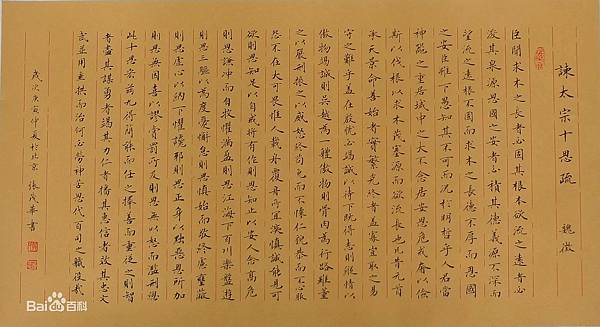 諫太宗十思疏 魏徵
臣聞求木之長者必固其根本欲流之遠者必
浚其泉源思國之安者必積其德義源不深而
望流之遠根不固而求木之長德不厚而思國
之安臣雖下愚知其不可而況於明哲乎人君當
神器之重居域中之大不念居安思危戒奢以儉
斯以伐根以求木茂塞源而欲流長也凡昔元首
承天景命善始者實繁克終者蓋寡豈取之易
守之難乎蓋在殷憂必竭誠以待下既得志則縱情以
傲物竭誠則吳越為一體傲物則骨肉為行路雖董
之以嚴刑振之以威怒終苟免而不懷仁貌恭而不心服
怨不在大可畏惟人載舟覆舟所宜深慎誠能見可
欲則思知足以自戒將有作則思知止以安人念高危
則思謙沖而自牧懼滿盈則思江海下百川樂盤遊
則思三驅以為度憂懈怠則思慎始而敬終慮壅蔽
則思虛心以納下懼讒邪則思正身以黜惡恩所加
則思無因喜以謬賞罰所及則思無以怒而濫刑總
此十思宏茲九得簡能而任之擇善而從之則智
者盡其謀勇者竭其力仁者播其惠信者效其忠文
武並用垂拱而治何必勞神苦思代百司之職役哉
歲次庚寅仲夏於北京 張茂華書
Bai百科